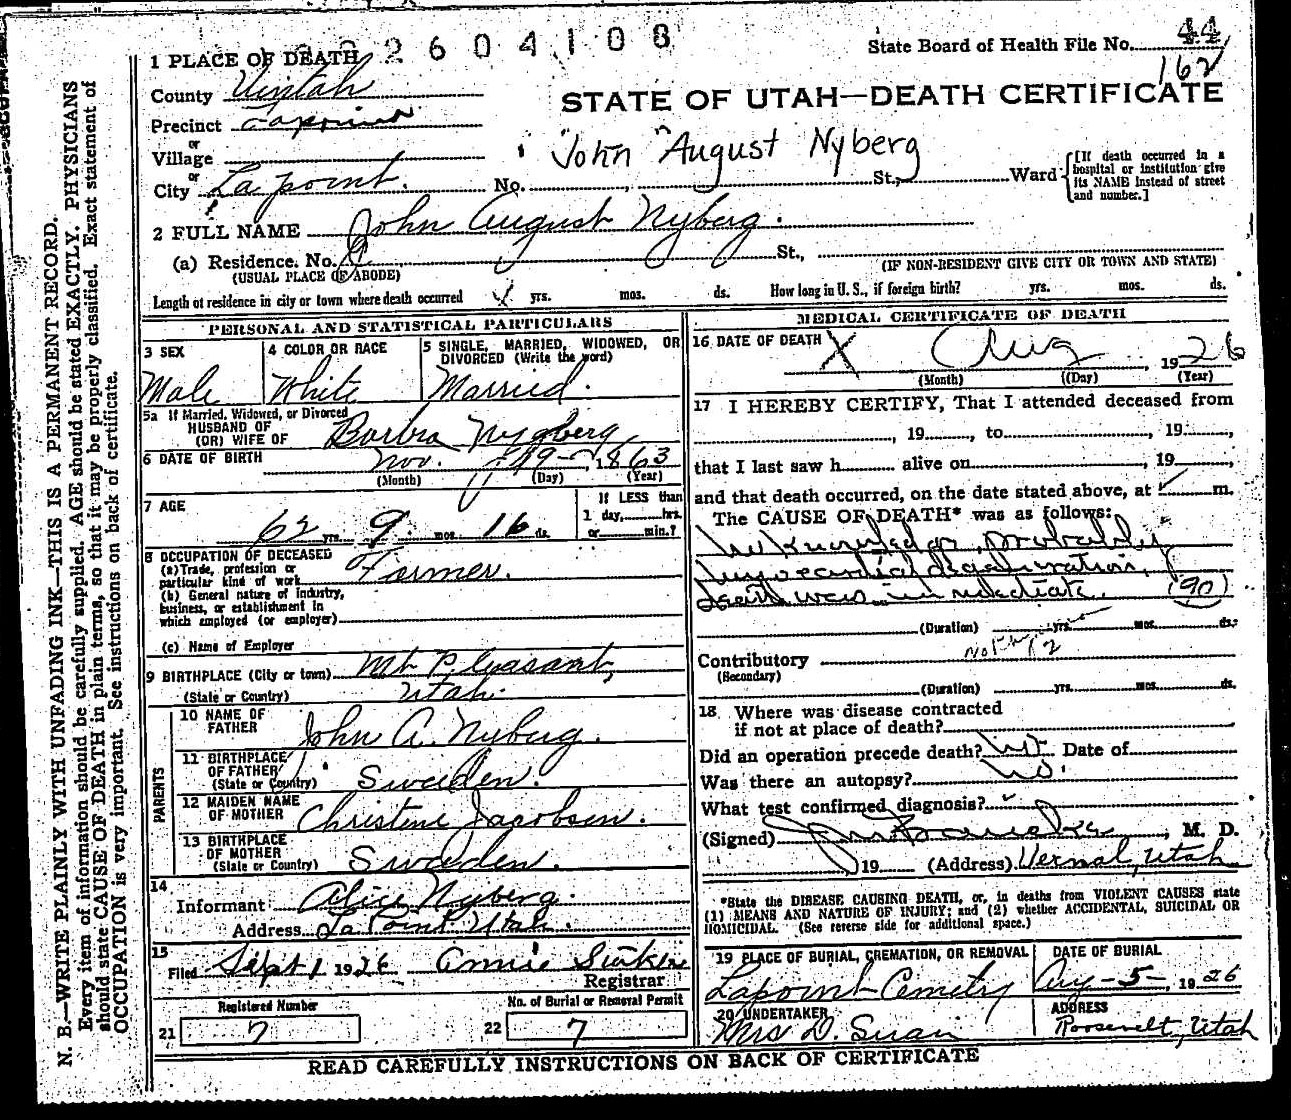 2 6 0 4 1 0 8
State Board of Health File No. 44
162
1 PLACE OF DEATH
County Uintah
STATE OF UTAH—DEATH CERTIFICATE
Precinct Lapoint
or
Village
"John" August Nyberg
or
City La point. No. St., Ward
[If death occurred in a hospital or institution give its NAME instead of street and number.]
2 FULL NAME John August Nyberg.
(a) Residence. No. St.,
(USUAL PLACE OF ABODE) (IF NON-RESIDENT GIVE CITY OR TOWN AND STATE)
Length of residence in city or town where death occurred yrs. mos. ds. How long in U. S., if foreign birth? yrs. mos. ds.
PERSONAL AND STATISTICAL PARTICULARS
3 SEX
Male
4 COLOR OR RACE
White
5 SINGLE, MARRIED, WIDOWED, OR
DIVORCED (Write the word)
Married.
5a If Married, Widowed, or Divorced
HUSBAND OF
(OR) WIFE OF Barbra Nygberg
6 DATE OF BIRTH Nov. 19- 1863
(Month) (Day) (Year)
7 AGE
62 yrs. 9 mos. 16 ds.
If LESS than
1 day, hrs.
or min.?
8 OCCUPATION OF DECEASED
(a) Trade, profession or
particular kind of work Farmer.
(b) General nature of industry,
business, or establishment in
which employed (or employer)
(c) Name of Employer
9 BIRTHPLACE (City or town) Mt. Pleasant,
(State or Country) Utah.
PARENTS
10 NAME OF
FATHER John A. Nyberg.
11 BIRTHPLACE
OF FATHER
(State or Country) Sweden.
12 MAIDEN NAME
OF MOTHER Christine Jacobsen.
13 BIRTHPLACE
OF MOTHER
(State or Country) Sweden.
14
Informant Alice Nyberg.
Address La Point. Utah.
15
Filed Sept 1 1926 Annie
Registrar
Registered Number
21 7
No. of Burial or Removal Permit
22 7
MEDICAL CERTIFICATE OF DEATH
16 DATE OF DEATH X Aug , 1926
(Month) (Day) (Year)
17 I HEREBY CERTIFY, That I attended deceased from
, 19 , to , 19 ,
that I last saw h alive on , 19 ,
and that death occurred, on the date stated above, at m.
The CAUSE OF DEATH* was as follows:
probably
myocardial degeneration,
death was immediate. (90)
(Duration) yrs. mos. ds.
Contributory
(Secondary)
(Duration) yrs. mos. ds.
18 Where was disease contracted
if not at place of death?
Did an operation precede death? Date of
Was there an autopsy? No.
What test confirmed diagnosis?
(Signed) , M. D.
19 (Address) Vernal, Utah
*State the DISEASE CAUSING DEATH, or, in deaths from VIOLENT CAUSES state
(1) MEANS AND NATURE OF INJURY; and (2) whether ACCIDENTAL, SUICIDAL OR
HOMICIDAL. (See reverse side for additional space.)
19 PLACE OF BURIAL, CREMATION, OR REMOVAL
Lapoint Cemetry
DATE OF BURIAL
Aug -5- , 1926
20 UNDERTAKER
Mrs D. Swain
ADDRESS
Roosevelt, Utah
READ CAREFULLY INSTRUCTIONS ON BACK OF CERTIFICATE
N. B.—WRITE PLAINLY WITH UNFADING INK—THIS IS A PERMANENT RECORD.
Every item of information should be carefully supplied. AGE should be stated EXACTLY. PHYSICIANS
should state CAUSE OF DEATH in plain terms, so that it may be properly classified. Exact statement of
OCCUPATION is very important. See instructions on back of certificate.